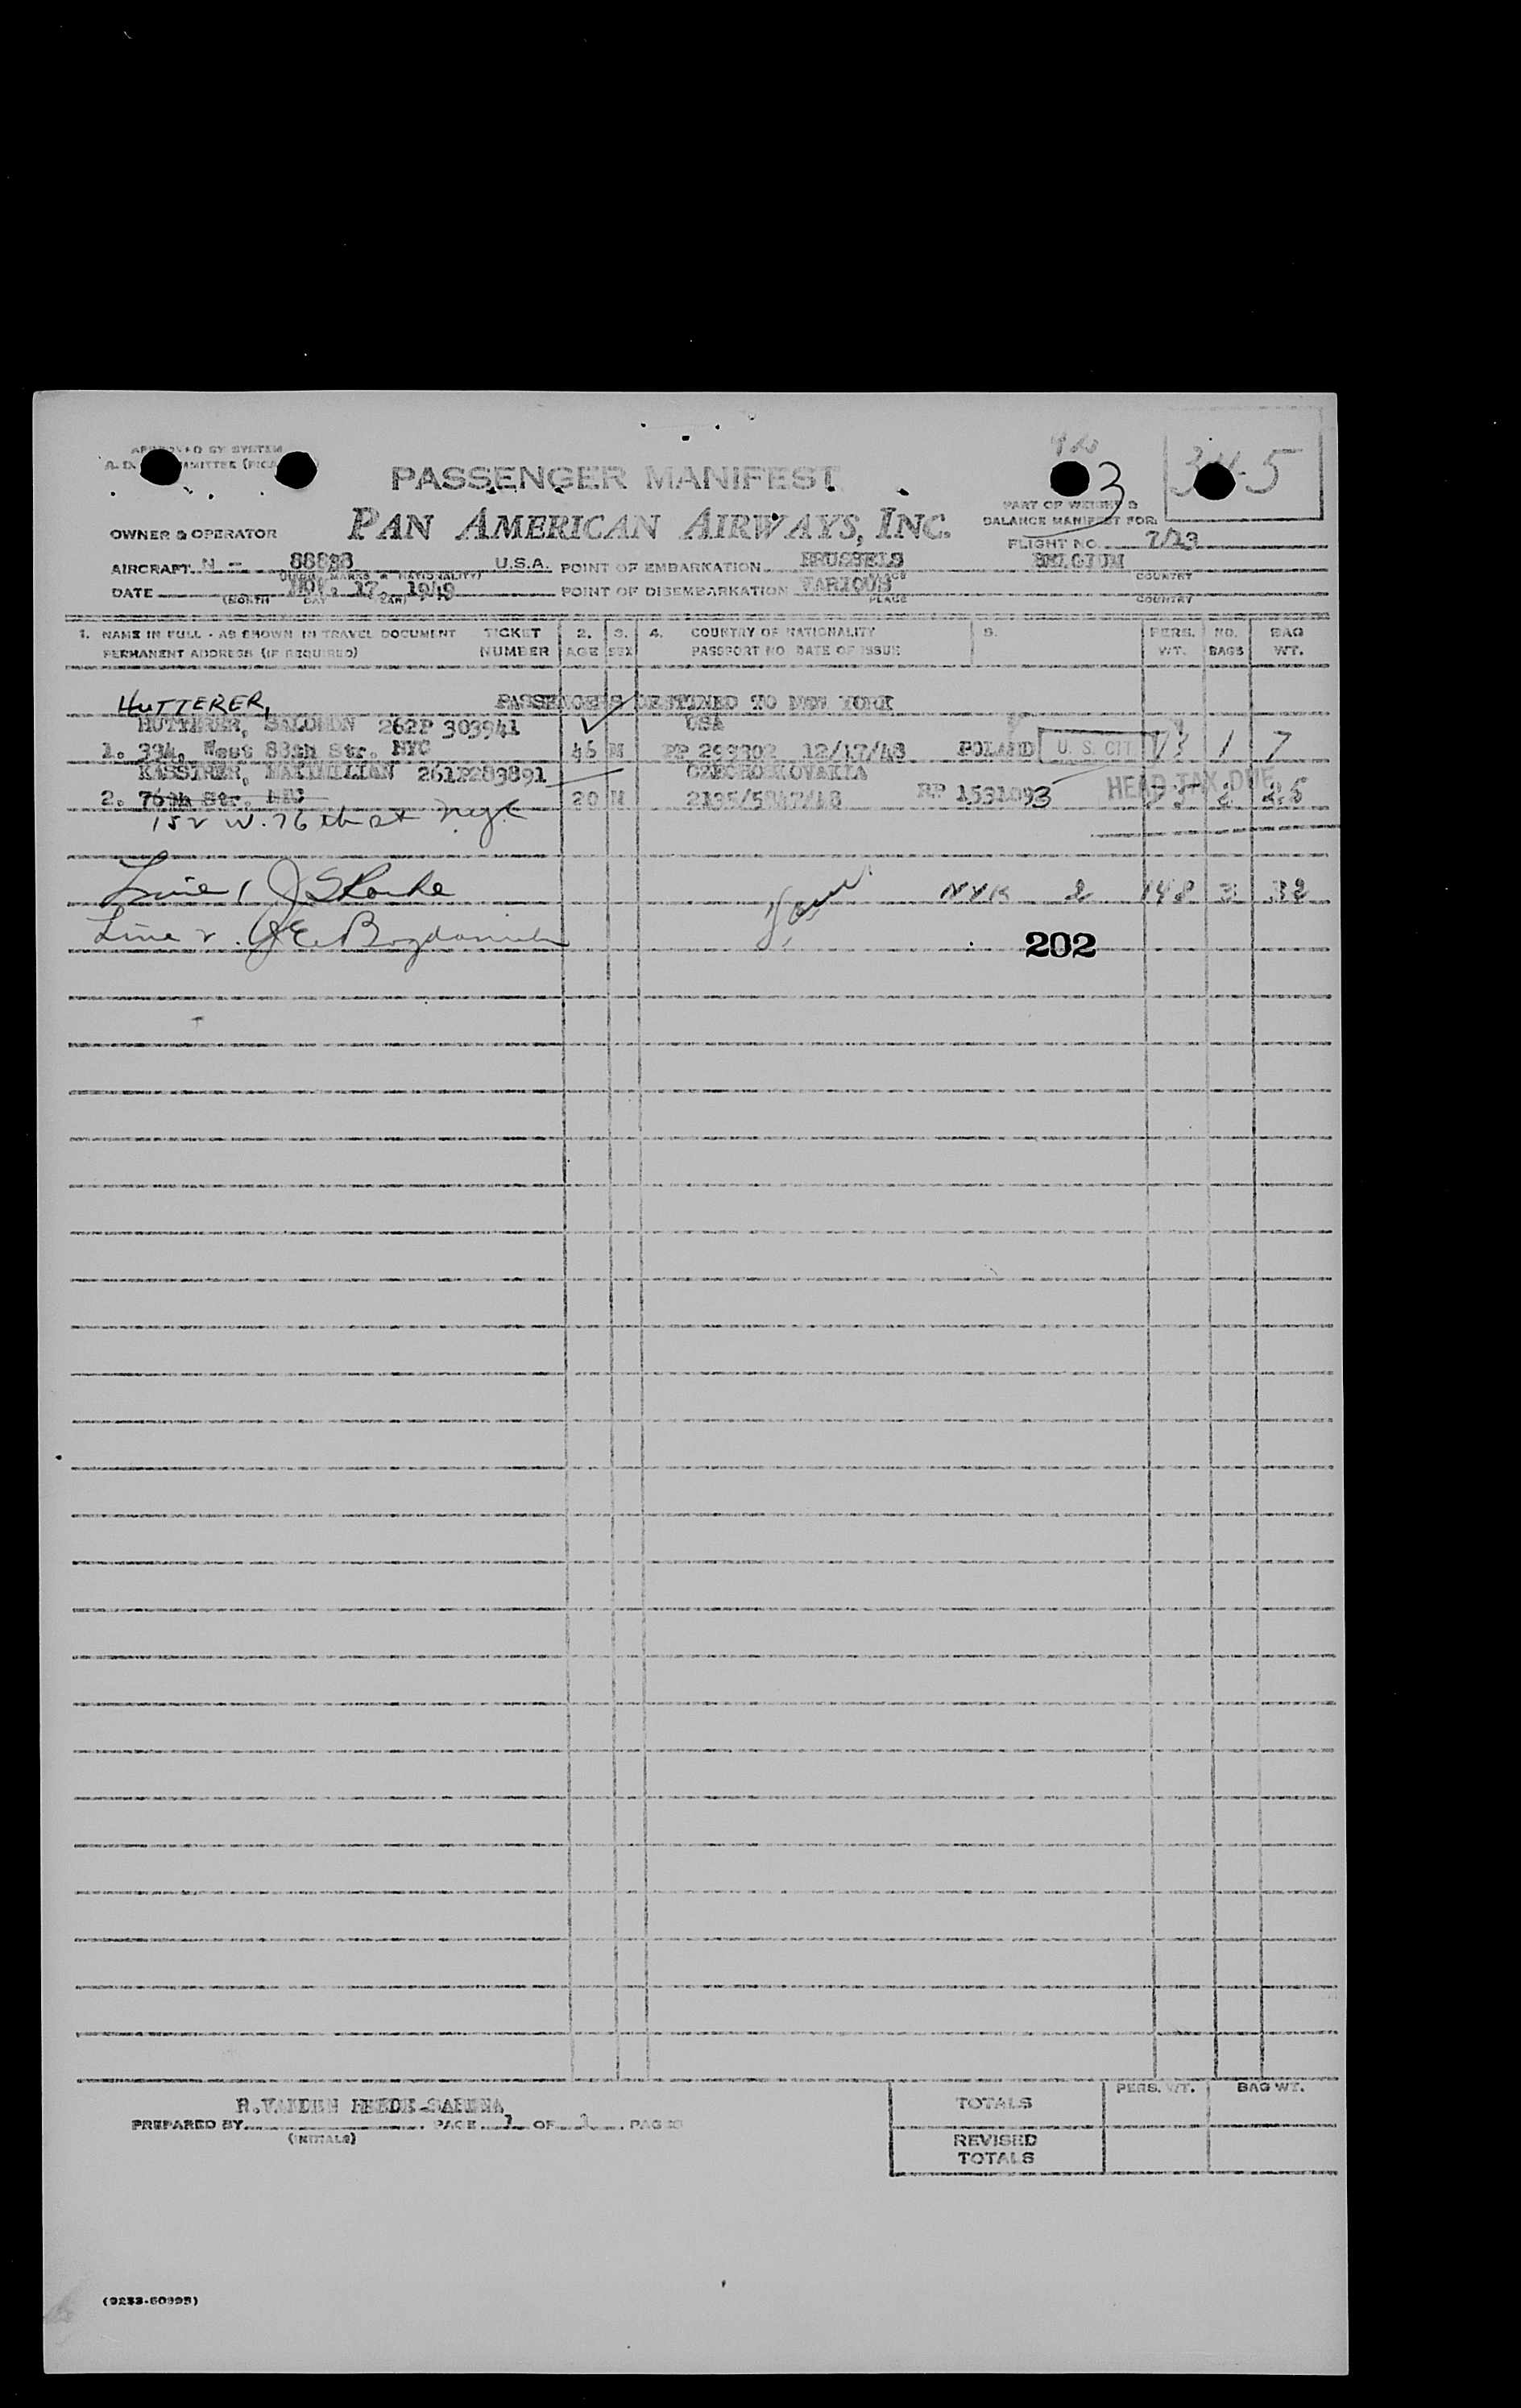 APPROVED BY SYSTEM
PASSENGER MANIFEST
3
345
PAN AMERICAN AIRWAYS, INC.
PART OF WEIGHT &
BALANCE MANIFEST FOR:
OWNER & OPERATOR
FLIGHT NO. 7/13
AIRCRAFT N - U.S.A. POINT OF EMBARKATION BRUSSELS BELGIUM
PLACE COUNTRY
DATE NOV. 17, 1949 POINT OF DISEMBARKATION VARIOUS
(MONTH DAY YEAR) PLACE COUNTRY
1. NAME IN FULL - AS SHOWN IN TRAVEL DOCUMENT TICKET 2. 3. 4. COUNTRY OF NATIONALITY 5. PERS. NO. BAG
PERMANENT ADDRESS (IF REQUIRED) NUMBER AGE SEX PASSPORT NO DATE OF ISSUE WT. BAGS WT.
HUTTERER, PASSENGERS DESTINED TO NEW YORK
HUTTERER, SALOMON 262P 303941 USA
1. 334, West 88th Str. NYC 46 M PP 12/17/48 POLAND U. S. CIT 73 1 7
KASSIRER, MAXIMILLIAN 261P289891 CZECHOSLOVAKIA
2. 76th Str. NYC 20 M RP 1531093 HEAD TAX DUE 75 2 25
152 W. 76 th st nyc
Line 1 NYK 2 148 3 32
Line 2.
202
PREPARED BY PAGE 1 OF 1 PAGES
(INITIALS)
TOTALS PERS. WT. BAG WT.
REVISED
TOTALS